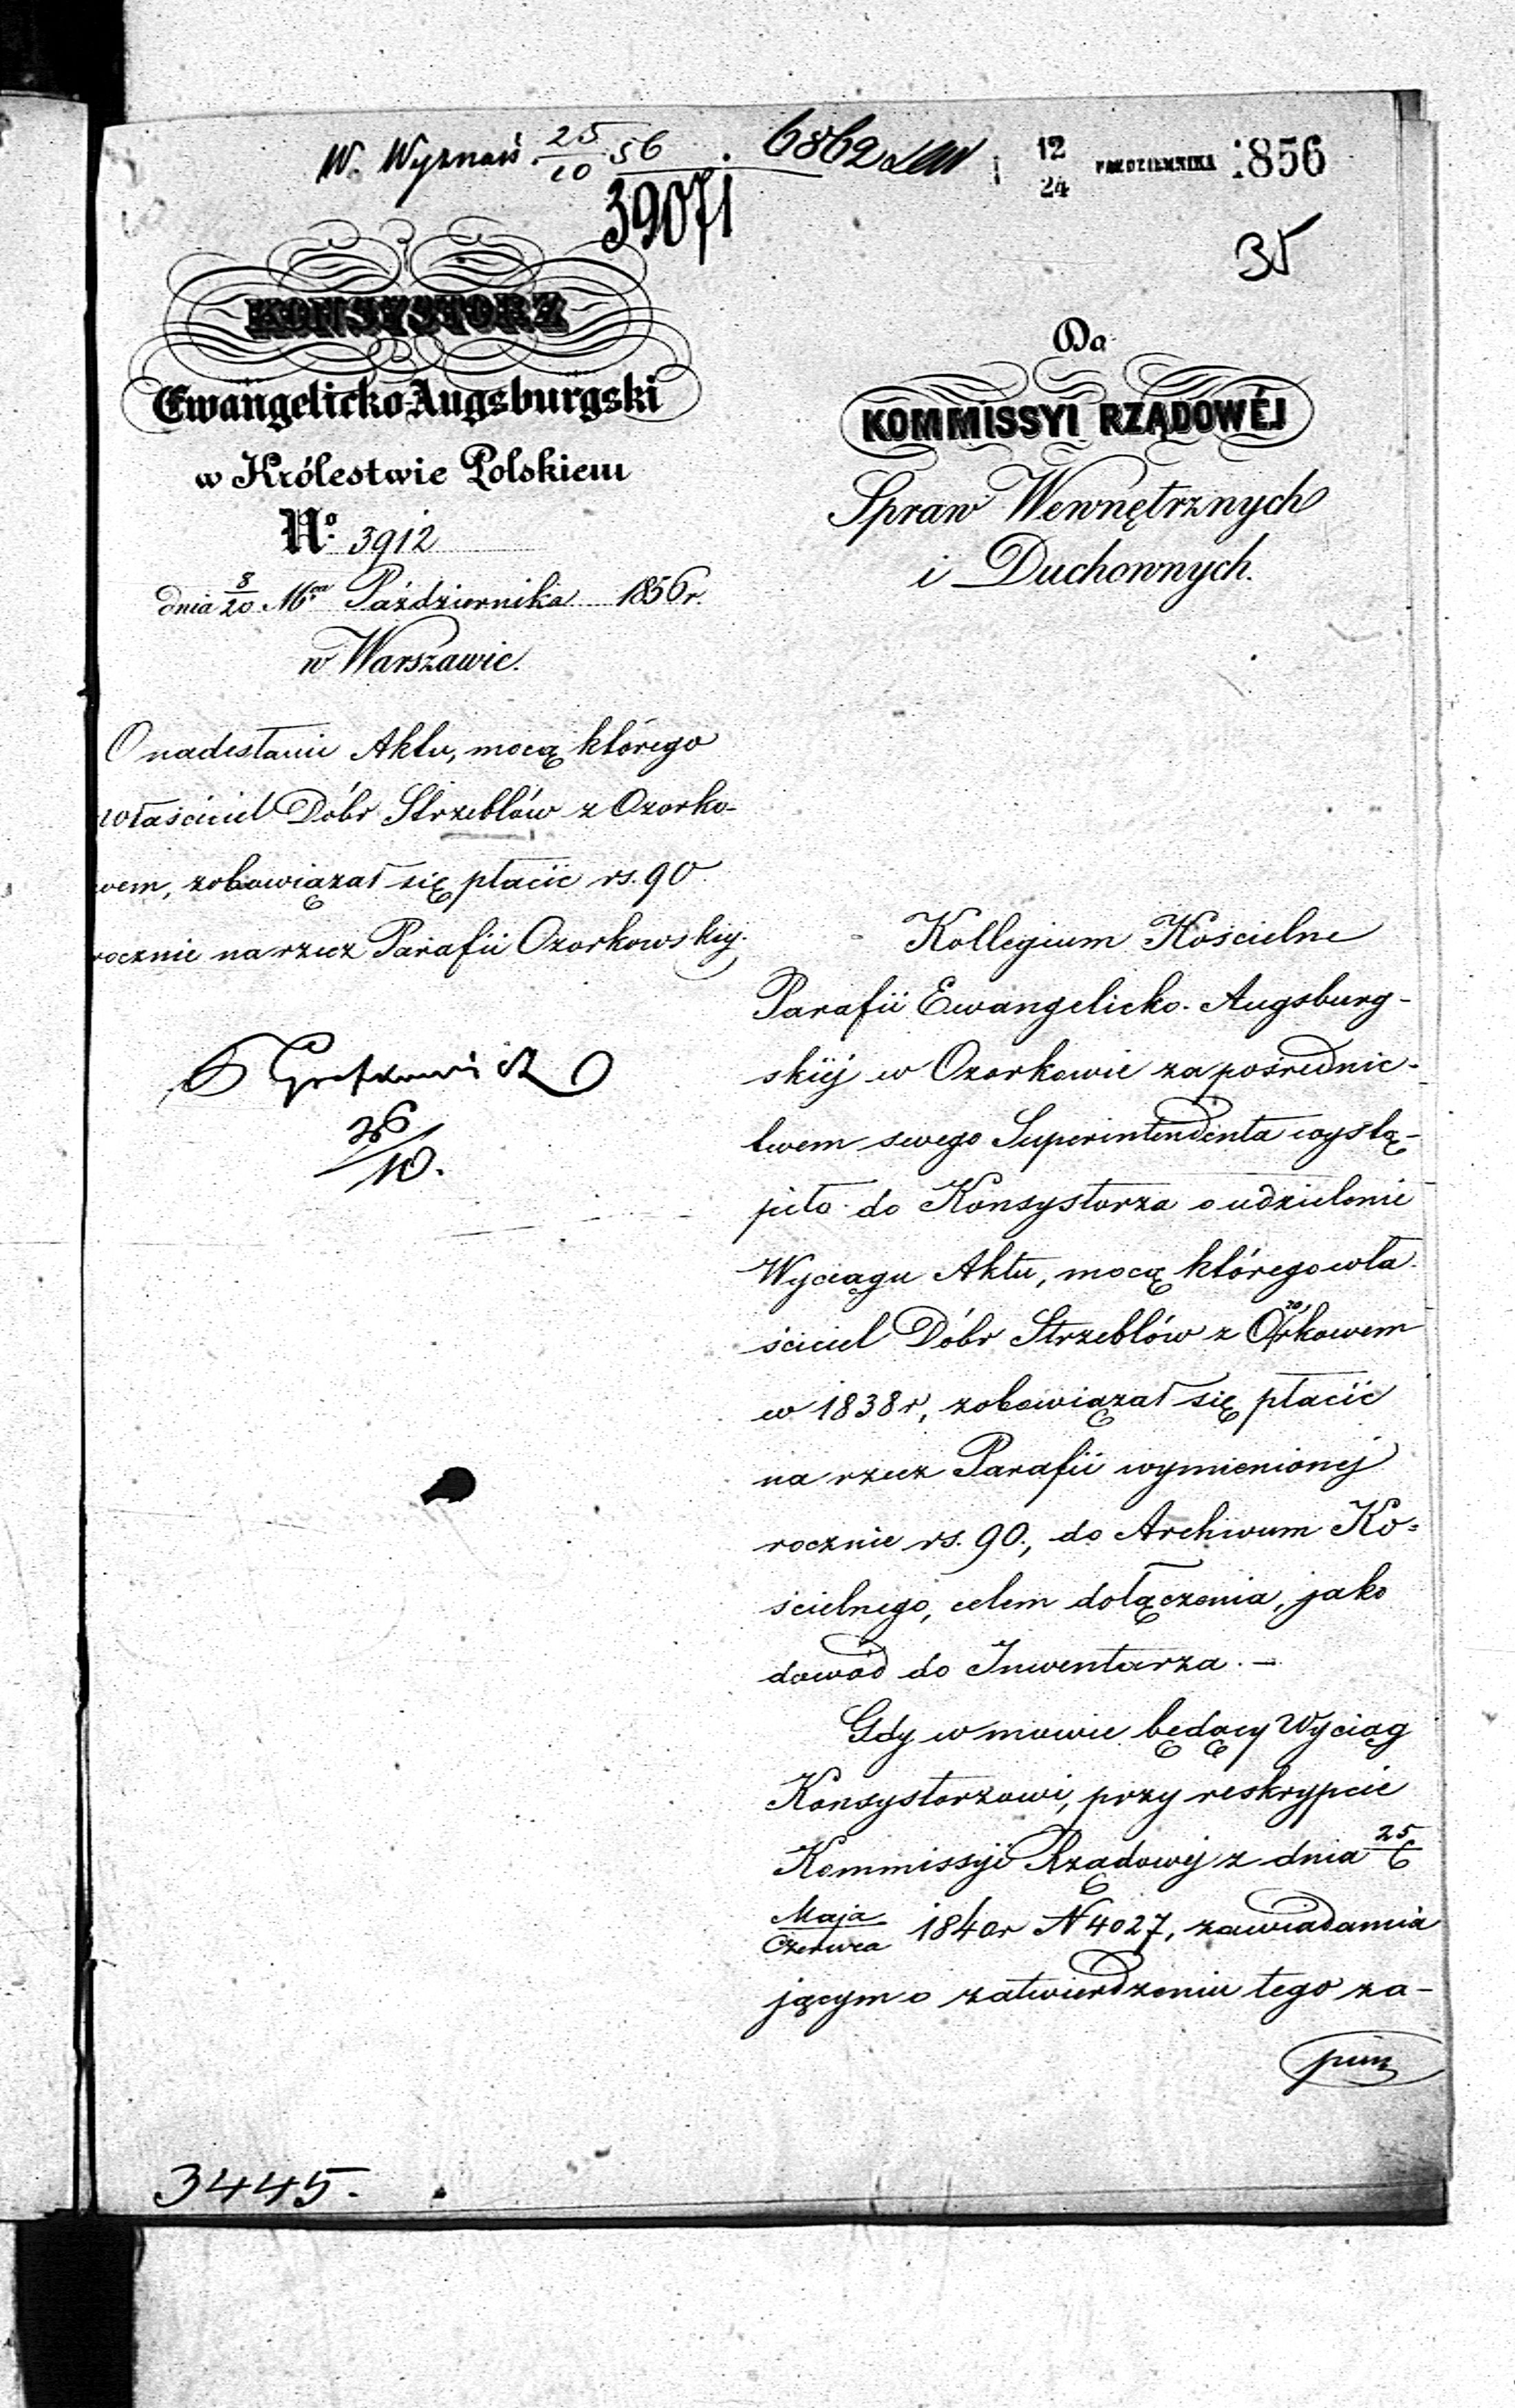 W. Wyznań 25/10 56 6862
12/24 PAŹDZIERNIKA 1856
39071
35
KONSYSTORZ
Ewangelicko-Augsburgski
w Królestwie Polskiem
No. 3912
dnia 8/20 Mca Października 1856 r.
w Warszawie.
Do
KOMMISSYI RZĄDOWÉJ
Spraw Wewnętrznych
i Duchownych.
O nadesłanie Aktu, mocą którego
właściciel Dóbr Strzeblów z Ozorko-
wem, zobowiązał się płacić rs. 90
rocznie na rzecz Parafii Ozorkowskiej.
26/10.
Kollegium Kościelne
Parafii Ewangelicko-Augsburg-
skiéj w Ozorkowie za pośrednic-
twem swego Superintendenta wystą-
piło do Konsystorza o udzielenie
Wyciągu Aktu, mocą którego wła-
ściciel Dóbr Strzeblów z Ozorkowem
w 1838 r, zobowiązał się płacić
na rzecz Parafii wymienionej
rocznie rs. 90., do Archiwum Ko=
ścielnego, celem dołączenia, jako
dowód do Inwentarza. —
Gdy w mowie będący Wyciąg
Konsystorzowi, przy reskrypcie
Kommissyi Rządowej z dnia 25/6
Maja/Czerwca 1840r N 4027, zawiadamia
jącym o zatwierdzeniu tego za-
pisu
3445.